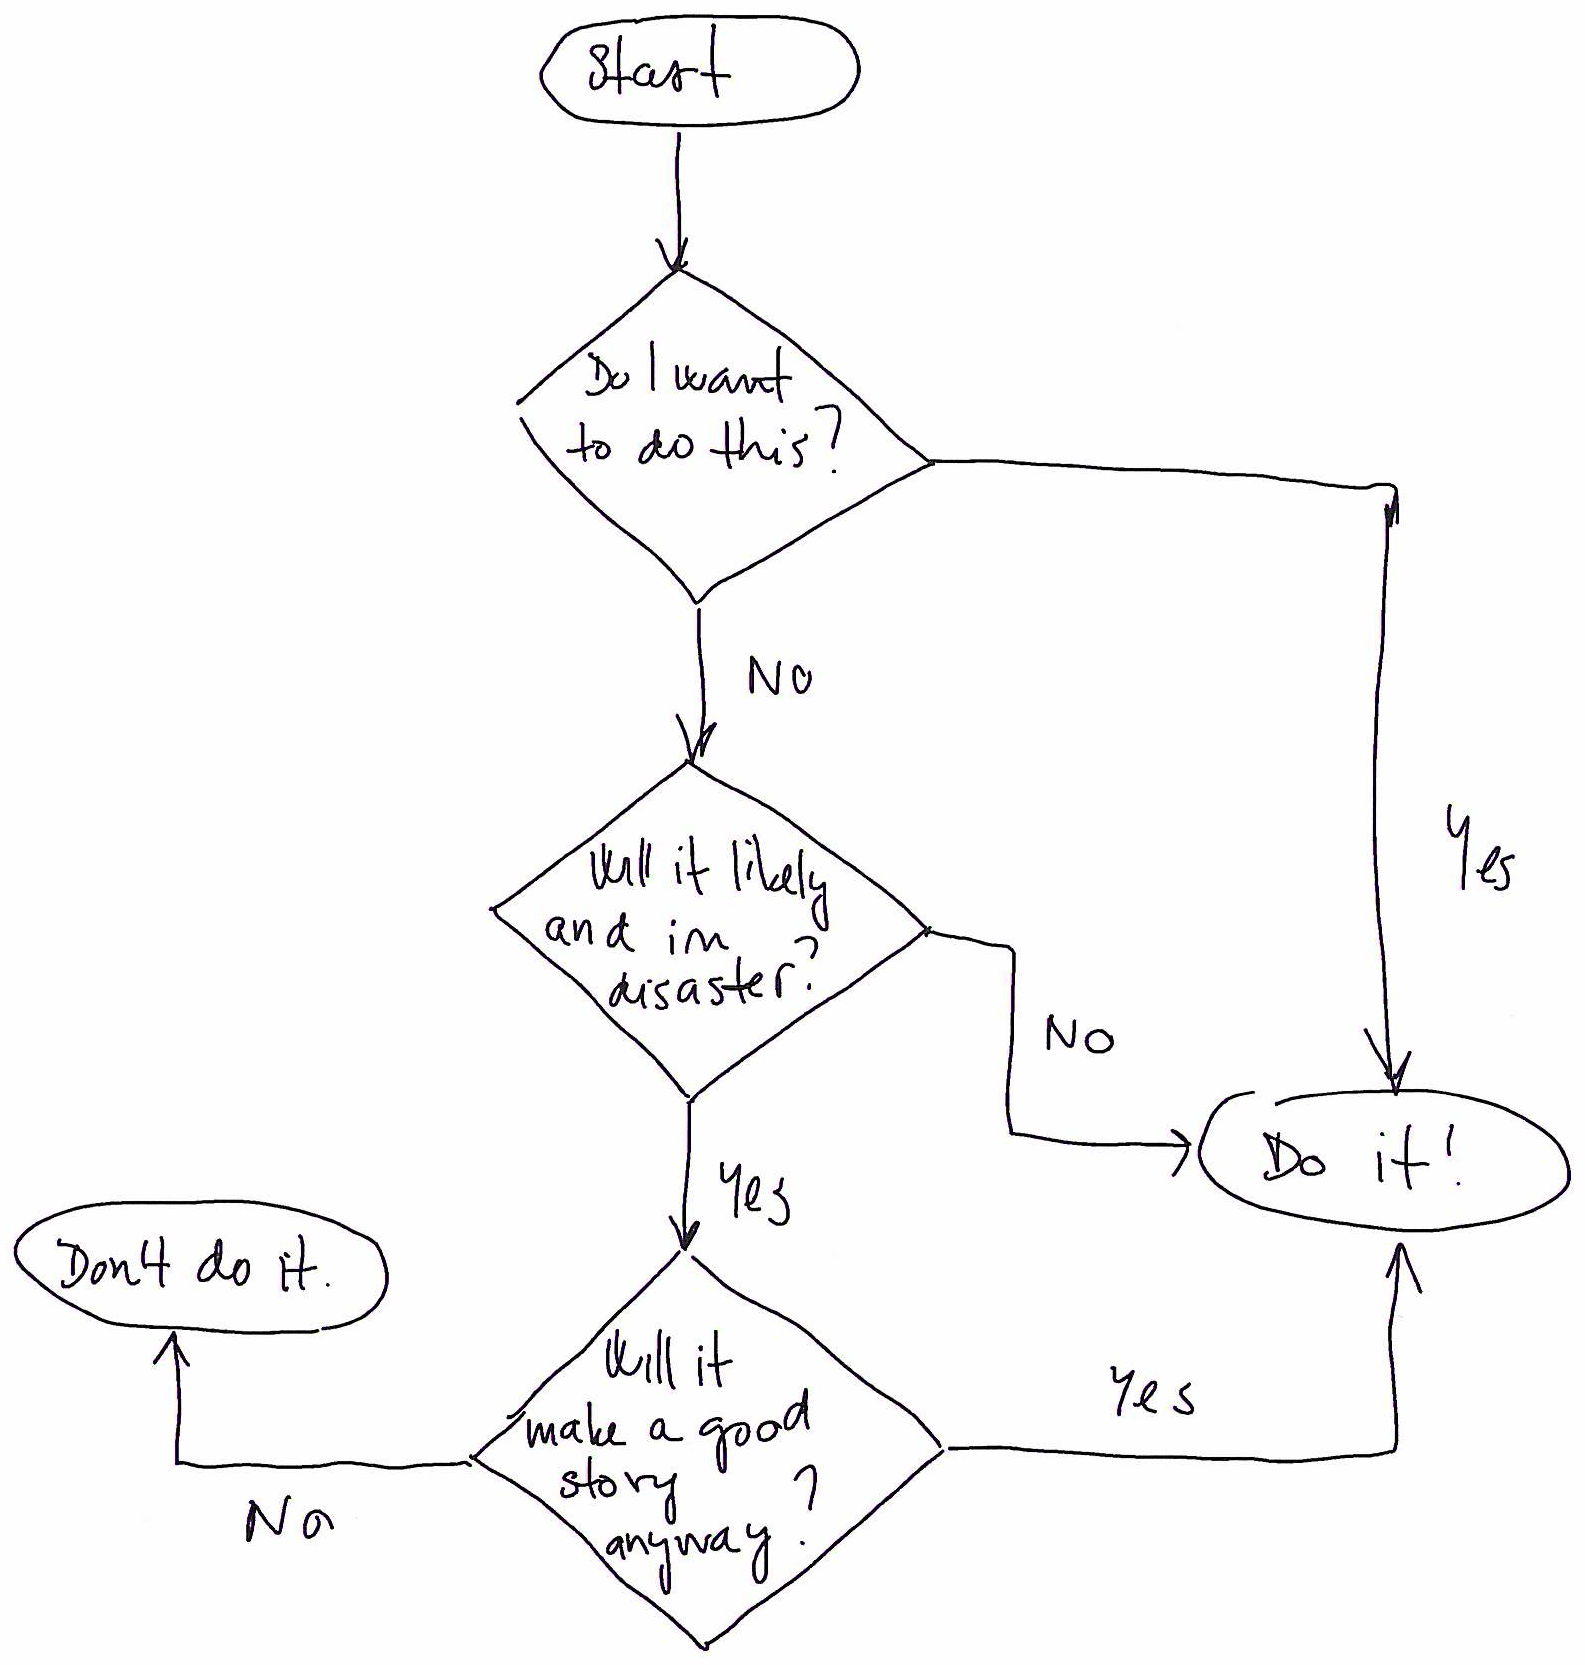 Start
Do I want
to do this?
No
Yes
Will it likely
and in
disaster?
No
Do it!
Yes
Don't do it.
Will it
make a good
story
anyway?
Yes
No